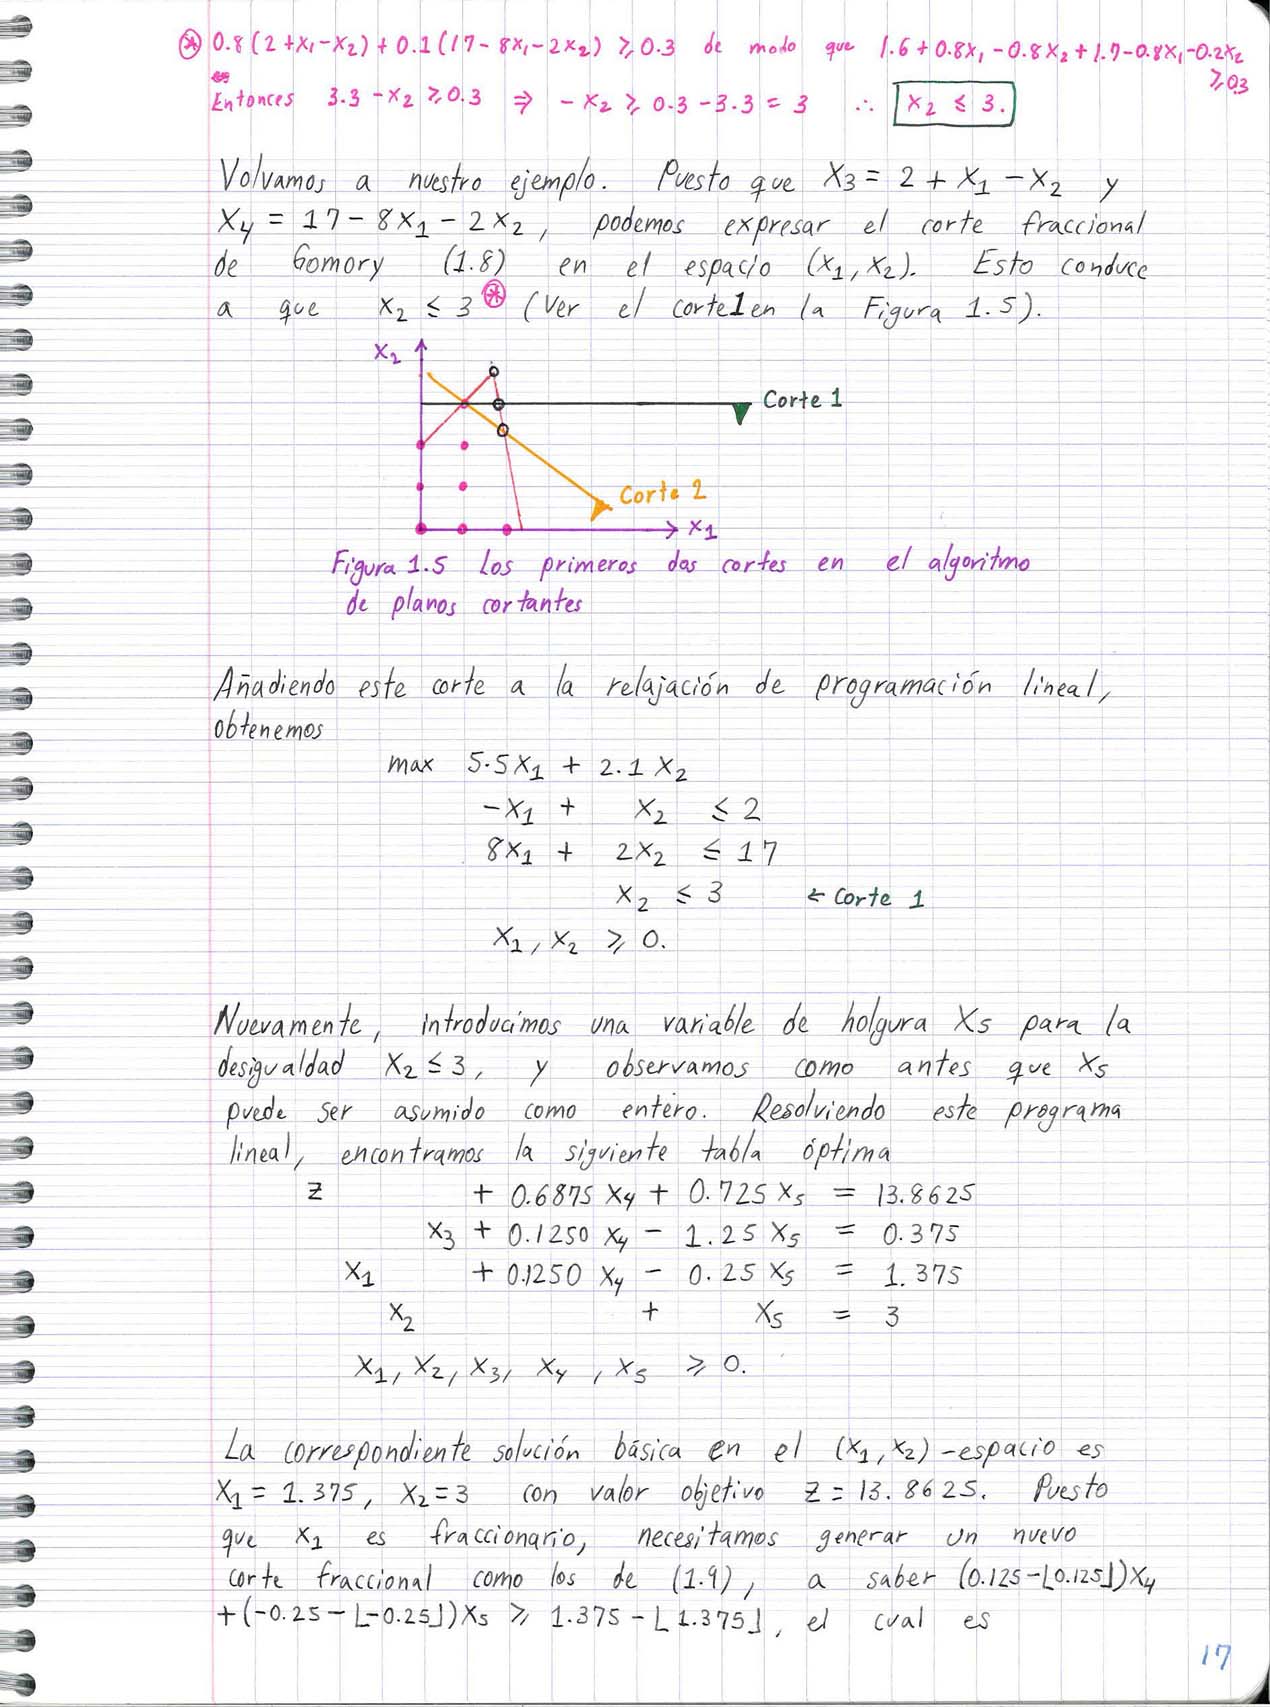 ⊛ 0.8(2+x₁-x₂) + 0.1(17-8x₁-2x₂) ≥ 0.3 de modo que 1.6+0.8x₁-0.8x₂+1.7-0.8x₁-0.2x₂
≥0.3
Entonces 3.3-x₂ ≥ 0.3 ⇒ -x₂ ≥ 0.3-3.3 = 3 ∴ x₂ ≤ 3.
Volvamos a nuestro ejemplo. Puesto que x₃ = 2 + x₁ - x₂ y
x₄ = 17 - 8x₁ - 2x₂, podemos expresar el corte fraccional
de Gomory (1.8) en el espacio (x₁, x₂). Esto conduce
a que x₂ ≤ 3 ⊛ (Ver el corte 1 en la Figura 1.5).
x₂
Corte 1
Corte 2
x₁
Figura 1.5 Los primeros dos cortes en el algoritmo
de planos cortantes
Añadiendo este corte a la relajación de programación lineal,
obtenemos
max 5.5x₁ + 2.1x₂
-x₁ + x₂ ≤ 2
8x₁ + 2x₂ ≤ 17
x₂ ≤ 3 ← Corte 1
x₁, x₂ ≥ 0.
Nuevamente, introducimos una variable de holgura x₅ para la
desigualdad x₂ ≤ 3, y observamos como antes que x₅
puede ser asumido como entero. Resolviendo este programa
lineal, encontramos la siguiente tabla óptima
z + 0.6875 x₄ + 0.725 x₅ = 13.8625
x₃ + 0.1250 x₄ - 1.25 x₅ = 0.375
x₁ + 0.1250 x₄ - 0.25 x₅ = 1.375
x₂ + x₅ = 3
x₁, x₂, x₃, x₄, x₅ ≥ 0.
La correspondiente solución básica en el (x₁, x₂)-espacio es
x₁ = 1.375, x₂ = 3 con valor objetivo z = 13.8625. Puesto
que x₁ es fraccionario, necesitamos generar un nuevo
corte fraccional como los de (1.9), a saber (0.125-⌊0.125⌋)x₄
+(-0.25-⌊-0.25⌋)x₅ ≥ 1.375-⌊1.375⌋, el cual es
17